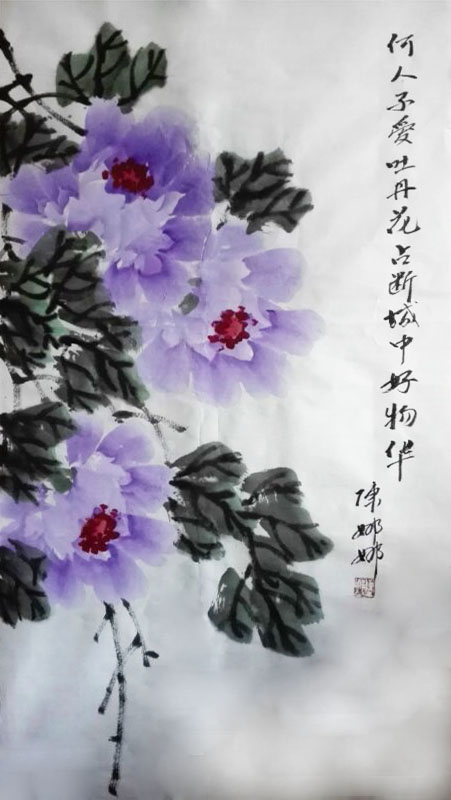 何人不愛牡丹花占断城中好物华
陳娜娜